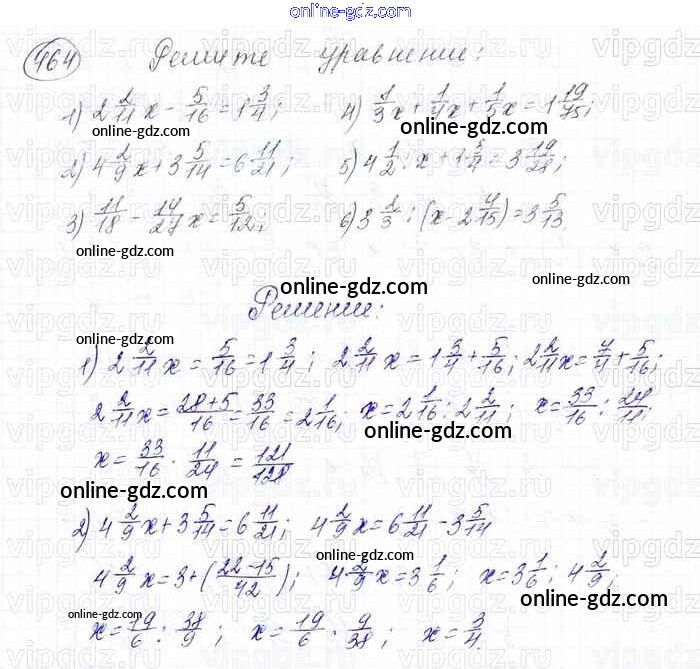 online-gdz.com
464 Решите уравнение:
1) 2 2/11 x - 5/16 = 1 3/4; 4) 1/3 x + 1/4 x + 1/5 x = 1 19/75;
online-gdz.com online-gdz.com
2) 4 2/9 x + 3 5/14 = 6 11/21; 5) 4 1/2 : x + 1 3/4 = 3 19/28;
online-gdz.com online-gdz.com
3) 11/18 - 14/27 x = 5/12; 6) 3 1/3 : (x - 2 4/15) = 3 5/13
online-gdz.com online-gdz.com online-gdz.com
Решение:
online-gdz.com
1) 2 2/11 x = 5/16 = 1 3/4; 2 2/11 x = 1 3/4 + 5/16; 2 2/11 x = 7/4 + 5/16;
online-gdz.com
2 2/11 x = 28+5/16 = 33/16 = 2 1/16; x = 2 1/16 : 2 2/11; x = 33/16 : 24/11;
online-gdz.com online-gdz.com
x = 33/16 · 11/24 = 121/128
online-gdz.com
2) 4 2/9 x + 3 5/14 = 6 11/21; 4 2/9 x = 6 11/21 - 3 5/14
online-gdz.com
4 2/9 x = 3 + (22-15/42); 4 2/9 x = 3 1/6; x = 3 1/6 : 4 2/9;
online-gdz.com online-gdz.com
x = 19/6 : 38/9; x = 19/6 · 9/38; x = 3/4.
online-gdz.com